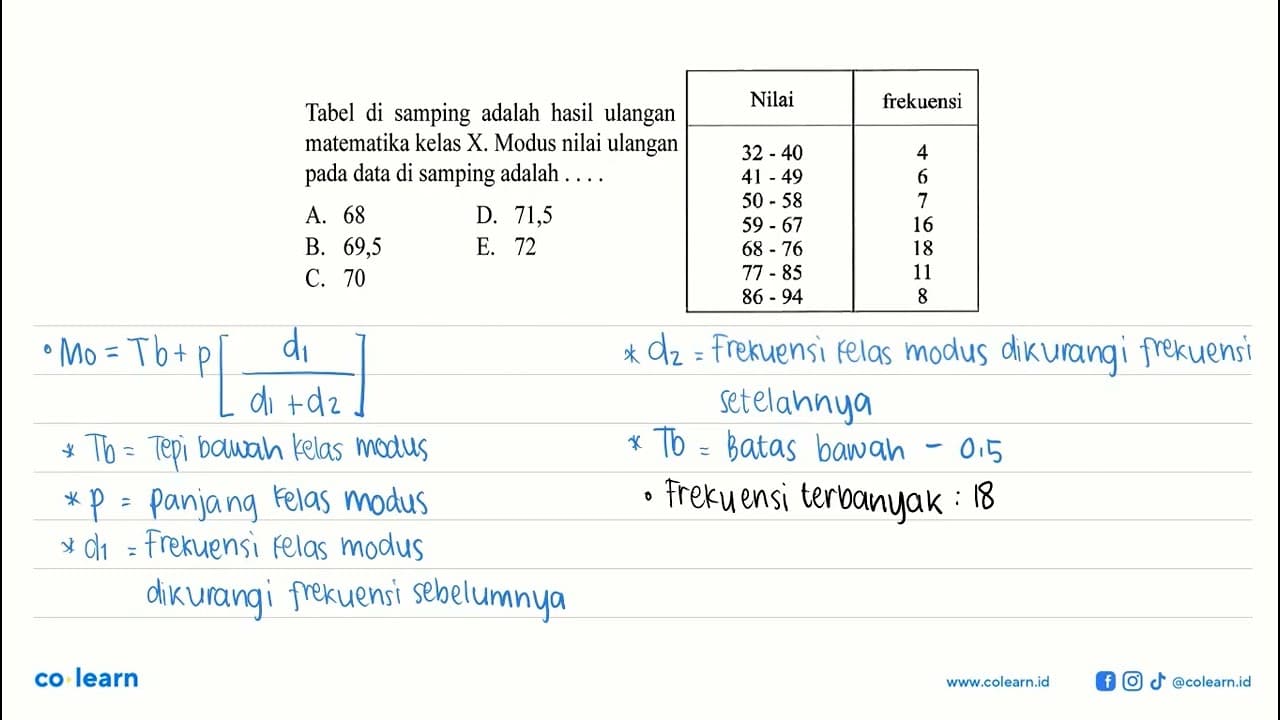 Tabel di samping adalah hasil ulangan
matematika kelas X. Modus nilai ulangan
pada data di samping adalah . . . .
A. 68 D. 71,5
B. 69,5 E. 72
C. 70
Nilai frekuensi
32 - 40 4
41 - 49 6
50 - 58 7
59 - 67 16
68 - 76 18
77 - 85 11
86 - 94 8
• Mo = Tb + p [ d1 / d1 + d2 ]
* Tb = Tepi bawah kelas modus
* p = panjang kelas modus
* d1 = Frekuensi kelas modus
dikurangi frekuensi sebelumnya
* d2 = Frekuensi kelas modus dikurangi frekuensi
setelahnya
* Tb = Batas bawah - 0,5
• Frekuensi terbanyak : 18
co learn
www.colearn.id
@colearn.id